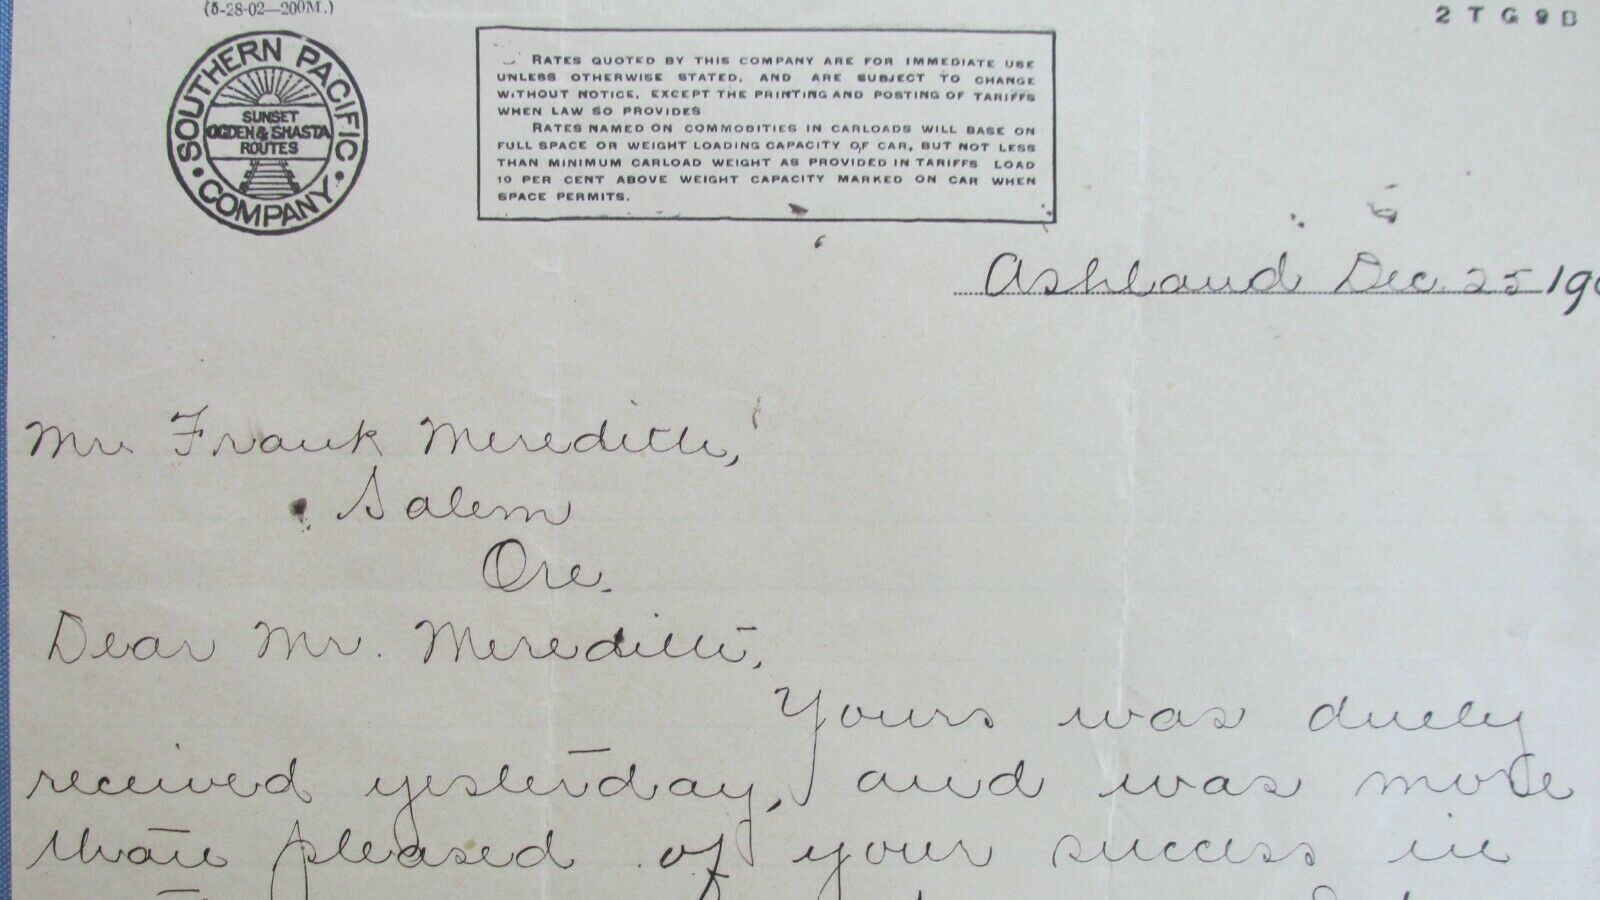 (5-28-02—200M.)
2 T G 9 B
SOUTHERN PACIFIC COMPANY
SUNSET
OGDEN & SHASTA
ROUTES
RATES QUOTED BY THIS COMPANY ARE FOR IMMEDIATE USE
UNLESS OTHERWISE STATED, AND ARE SUBJECT TO CHANGE
WITHOUT NOTICE, EXCEPT THE PRINTING AND POSTING OF TARIFFS
WHEN LAW SO PROVIDES
RATES NAMED ON COMMODITIES IN CARLOADS WILL BASE ON
FULL SPACE OR WEIGHT LOADING CAPACITY OF CAR, BUT NOT LESS
THAN MINIMUM CARLOAD WEIGHT AS PROVIDED IN TARIFFS LOAD
10 PER CENT ABOVE WEIGHT CAPACITY MARKED ON CAR WHEN
SPACE PERMITS.
Ashland Dec. 25 190
Mr. Frank Meredith,
Salem
Ore.
Dear Mr. Meredith,
Yours was duely
received yesterday, and was more
than pleased of your success in